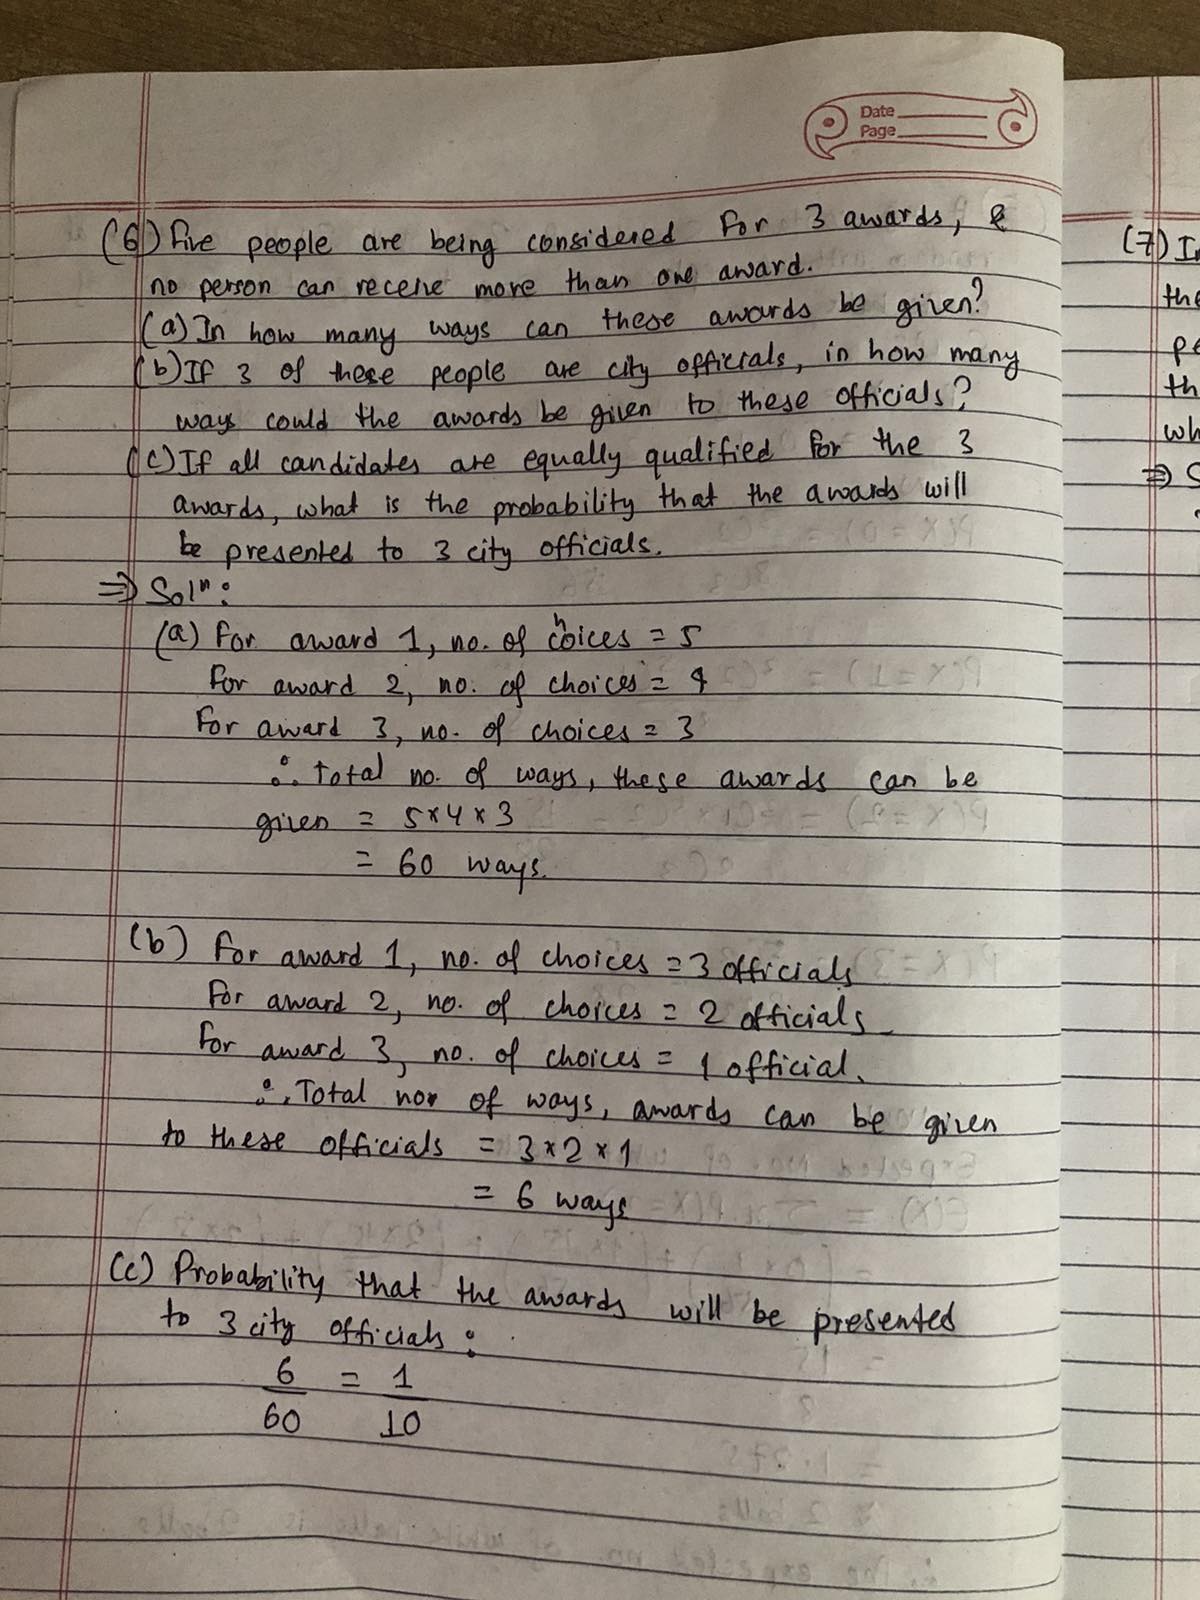 Date
Page
(6) Five people are being considered for 3 awards, &
no person can receive more than one award.
(a) In how many ways can these awards be given?
(b) If 3 of these people are city officials, in how many
ways could the awards be given to these officials?
(c) If all candidates are equally qualified for the 3
awards, what is the probability that the awards will
be presented to 3 city officials.
⇒ Solⁿ:
(a) For award 1, no. of choices = 5
For award 2, no. of choices = 4
For award 3, no. of choices = 3
∴ Total no. of ways, these awards can be
given = 5 × 4 × 3
= 60 ways.
(b) For award 1, no. of choices = 3 officials
For award 2, no. of choices = 2 officials
For award 3, no. of choices = 1 official.
∴ Total no. of ways, awards can be given
to these officials = 3 × 2 × 1
= 6 ways
(c) Probability that the awards will be presented
to 3 city officials:
6/60 = 1/10
(7) I
the
th
wh
⇒ S